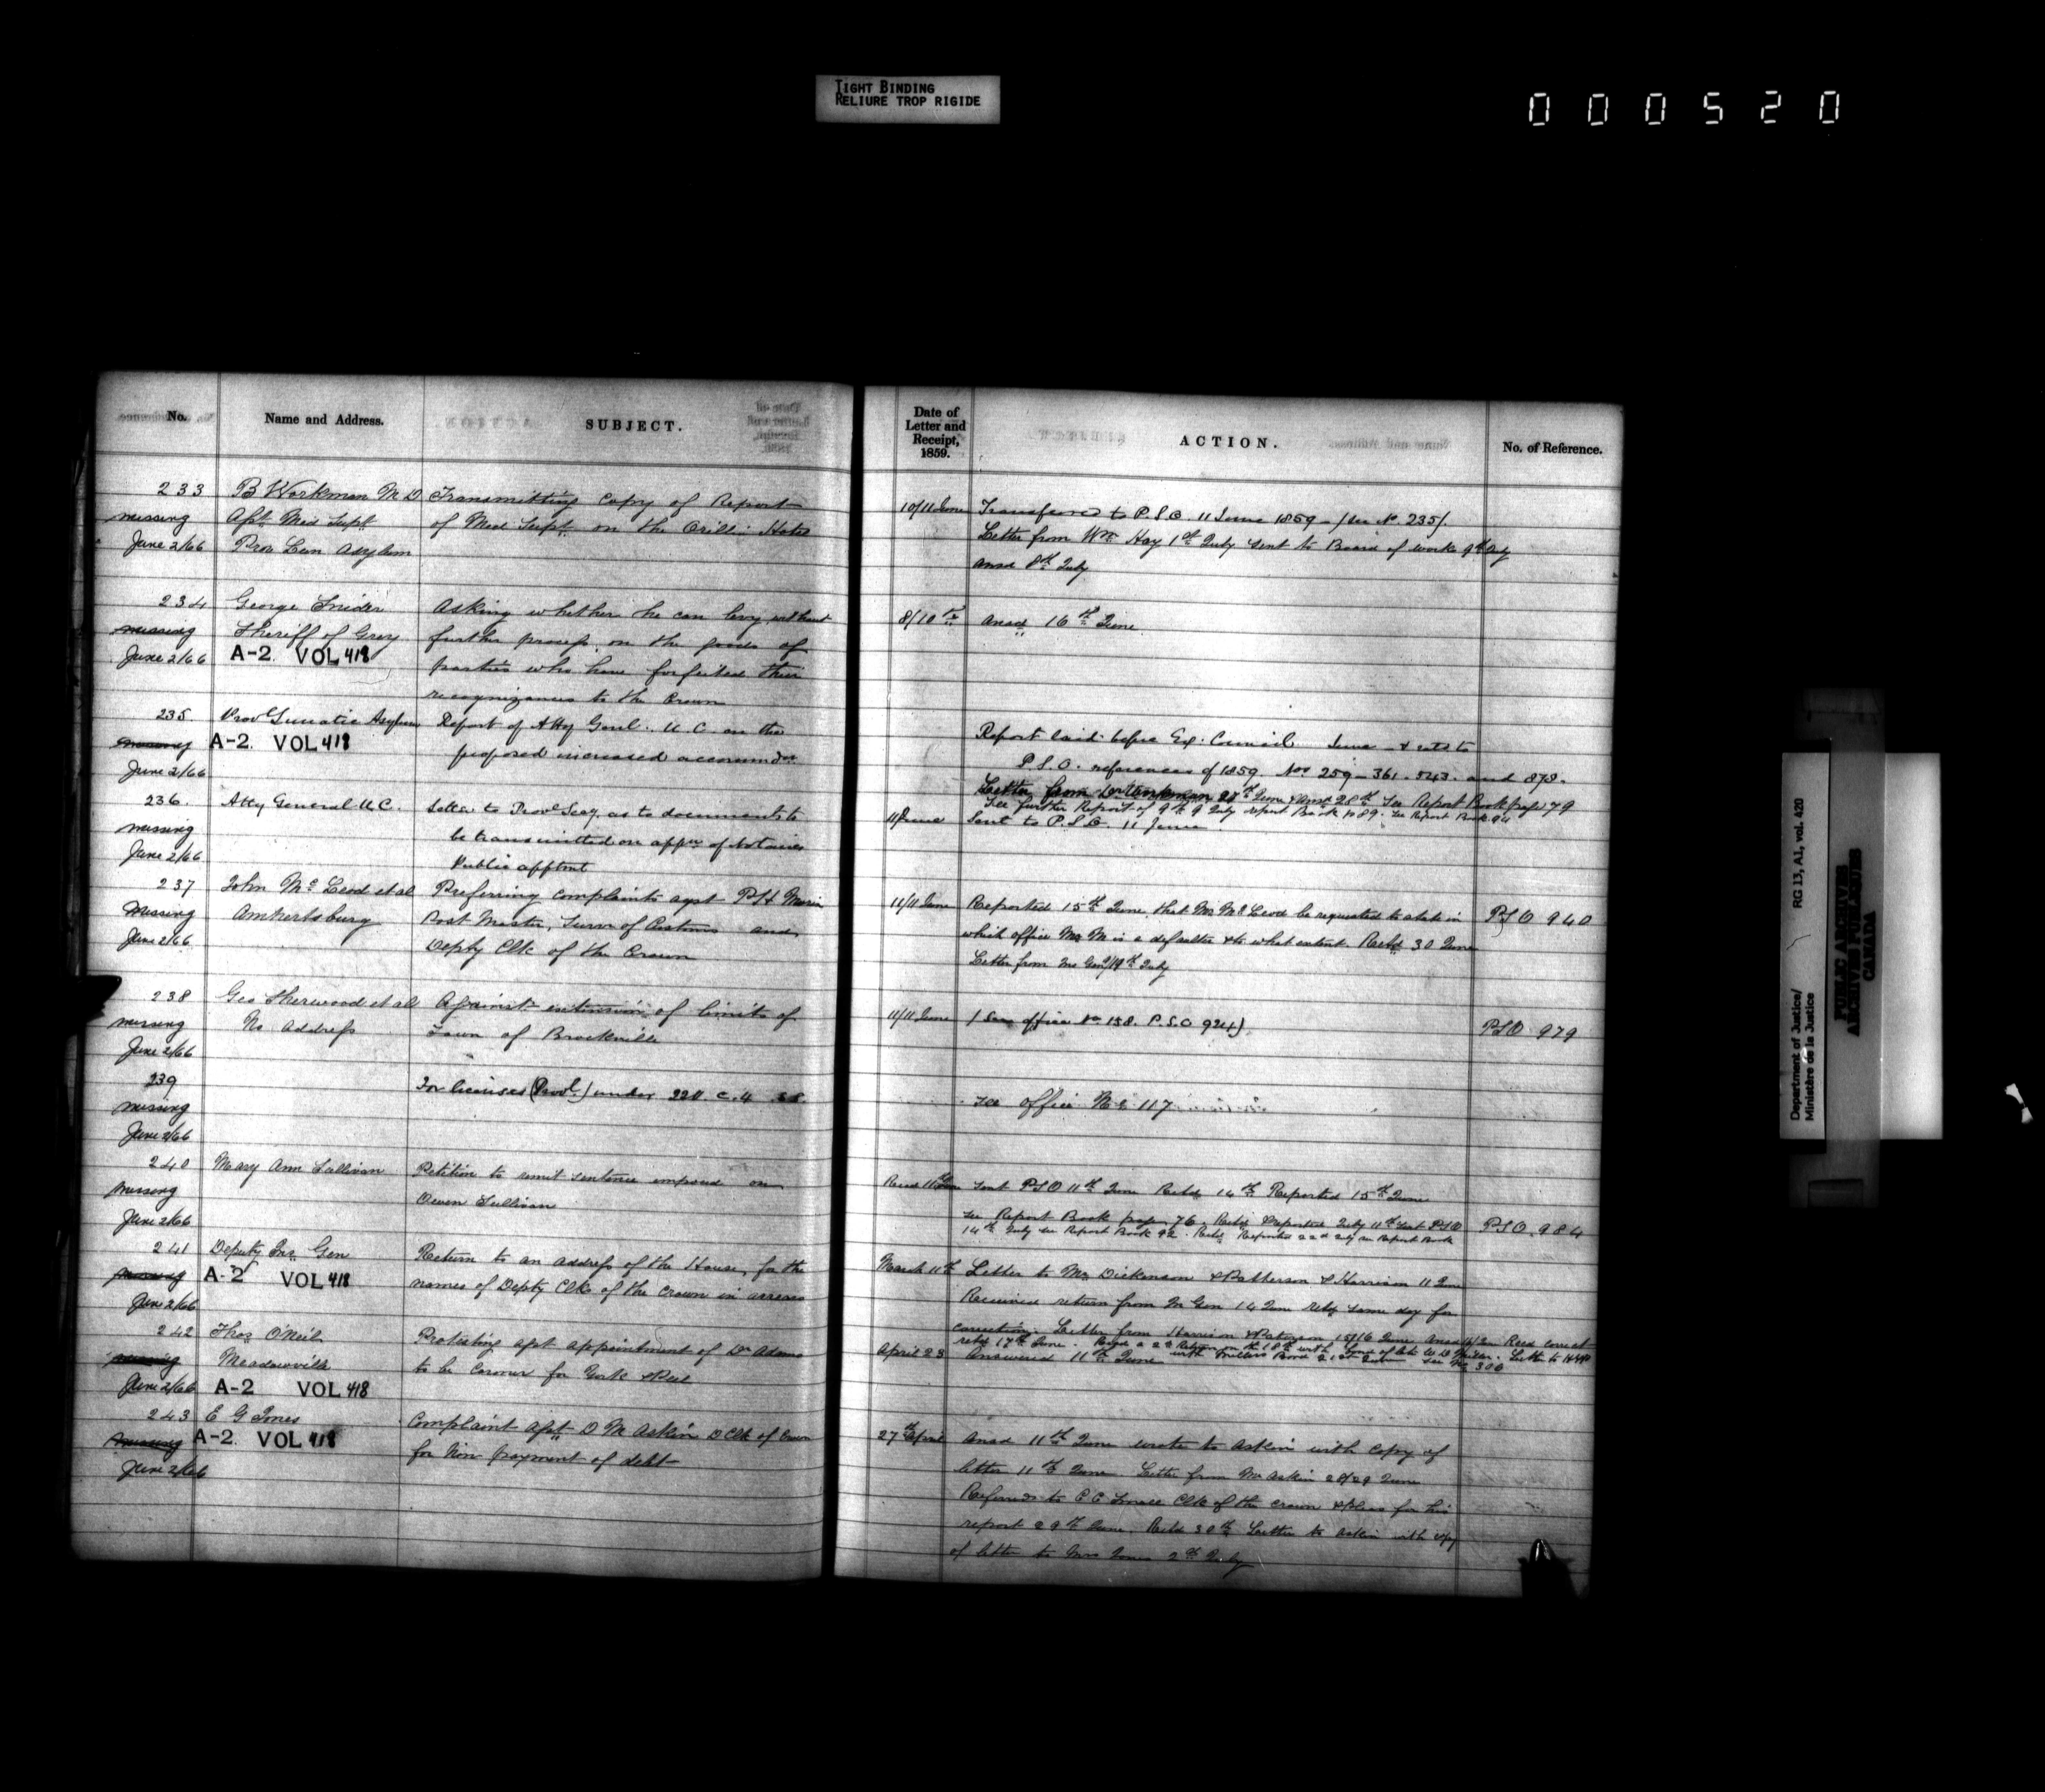 TIGHT BINDING
RELIURE TROP RIGIDE
000520
No.
Name and Address.
SUBJECT.
Date of
Letter and
Receipt,
1859.
ACTION.
No. of Reference.
233 B Workman M D Transmitting Copy of Report 10/11 June Transferred to P.S.O. 11 June 1859 - (See No. 235).
missing Asst. Med Supt of Med Supt. on the Orillia Hotel Letter from Wm Hay 1st July sent to Board of works
June 2/66 Prov Lun Asylum ansd 8th July
234 George Snider Asking whether he can levy without 8/10th ansd 16th June
missing Sheriff of Grey further process, on the goods of
June 2/66 A-2. VOL 418 parties who have forfeited their
recognizances to the Crown
235 Provl Lunatic Asylum Report of Atty Genl. U C on the Report laid before Ex. Council June
missing A-2. VOL 418 proposed increased accommdn P.S.O. references of 1859. Nos 259 - 361 - 543. and 878.
June 2/66 Letter from Dr Workman 27th June Ansd 28th See Report Book page 79
See further Report of 9th July report Book p 89. See Report Book 94
236. Atty General U.C. Letter to Provl Secy, as to documents to 11 June Sent to P.S.O. 11 June.
missing be transmitted on appn of Notaries
June 2/66 Public apptmt
237 John McLeod et al Preferring complaints agst P H Morin 11/11 June Reported 15th June, that Mr McLeod be requested to state in PSO 940
Missing Amhertsburg Post Master, Survr of Customs and which office Mr M is a defaulter & to what extent. Retd 30 June
June 2/66 Depty Clk of the Crown Letter from Ins Genl 19th July
238 Geo Sherwood et al Against extension of limits of 11/11 June (See office No 158. P.S.O 924) PSO 979
missing No Address Town of Brockville
June 2/66
239 For licenses (Provl) under 22 V. C. 4 See office No 117
missing
June 2/66
240 Mary Ann Sullivan Petition to remit sentence imposed on Recd 11 June Sent PSO 11th June Retd. 14th Reported 15th June
missing Owen Sullivan
June 2/66 See Report Book page 76. Retd Reported July 11th Sent PSO PSO. 984
14th July see Report Book 92. Retd. Reported 22d July see Report Book
241 Deputy Ins. Gen Return to an address of the House, for the March 11th Letter to Mr Dickenson & Patterson & Harrison 11 June
missing A-2 VOL 418 names of Depty Clks of the Crown in arrears
June 2/66 Received return from In Gen 14 June retd same day for
correction. Letter from Harrison & Paterson 15/16 June
retd 17th June.
242 Thos O'Neil Protesting agst appointment of Dr Adams April 23 Answered 11th June
missing Meadowville to be Coroner for York & Peel
June 2/66 A-2 VOL 418
243 E G Jones Complaint agst D M Askin D Clk of Crown 27th April Ansd 11th June wrote to Askin with copy of
missing A-2. VOL 418 for Non payment of debt letter 11th June Letter from Mr Askin 28/29 June
June 2/66 Referred to C C Small Clk of the Crown & Pleas for his
report 29th June. Retd 30th Letter to Askin with copy
of letter to Mrs Jones 2nd July
Department of Justice/
Ministère de la Justice
RG 13, A1, vol. 420
PUBLIC ARCHIVES
ARCHIVES PUBLIQUES
CANADA